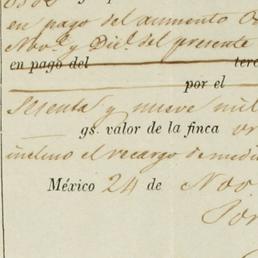 en pago del aumento
Nov.e y Dic.e del presente
en pago del terc
por el
Sesenta y nueve mil
gs. valor de la finca
incluso el recargo de medi
México 24 de Nov